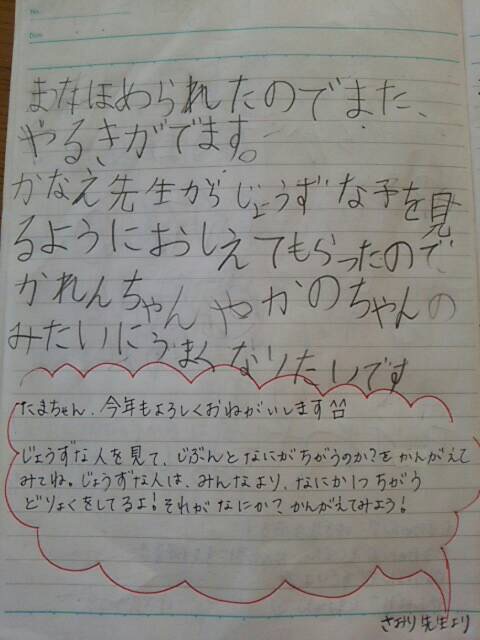 No.
Date
まなほめられたのでまた、
やるきがでます。
かなえ先生からじょうずな子を見
るようにおしえてもらったので
かれんちゃんやかのちゃんの
みたいにうまくなりたいです
たまちゃん、今年もよろしくおねがいします^^
じょうずな人を見て、じぶんとなにがちがうのか?をかんがえて
みてね。じょうずな人は、みんなより、なにか1つちがう
どりょくをしてるよ!それがなにか?かんがえてみよう!
さおり先生より